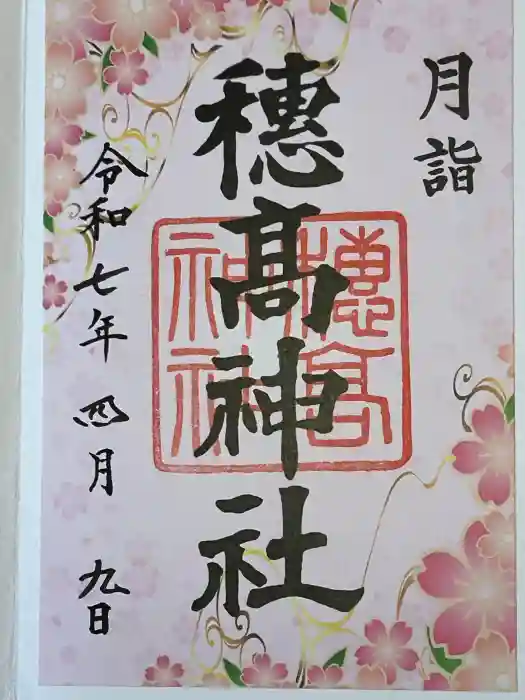 月詣
穂髙神社
穂高神社
令和七年 四月 九日